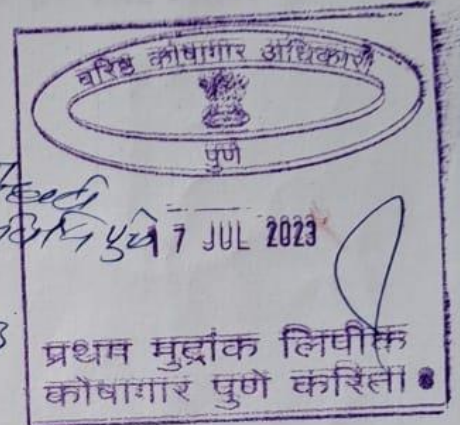 वरिष्ठ कोषागार अधिकारी
पुणे
17 JUL 2023
प्रथम मुद्रांक लिपीक
कोषागार पुणे करिता